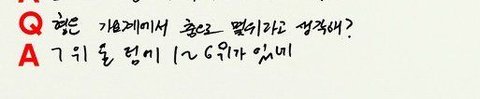 Q 형은 가요계에서 춤으로 몇위라고 생각해?
A 7위 울 팀에 1~6위가 있네